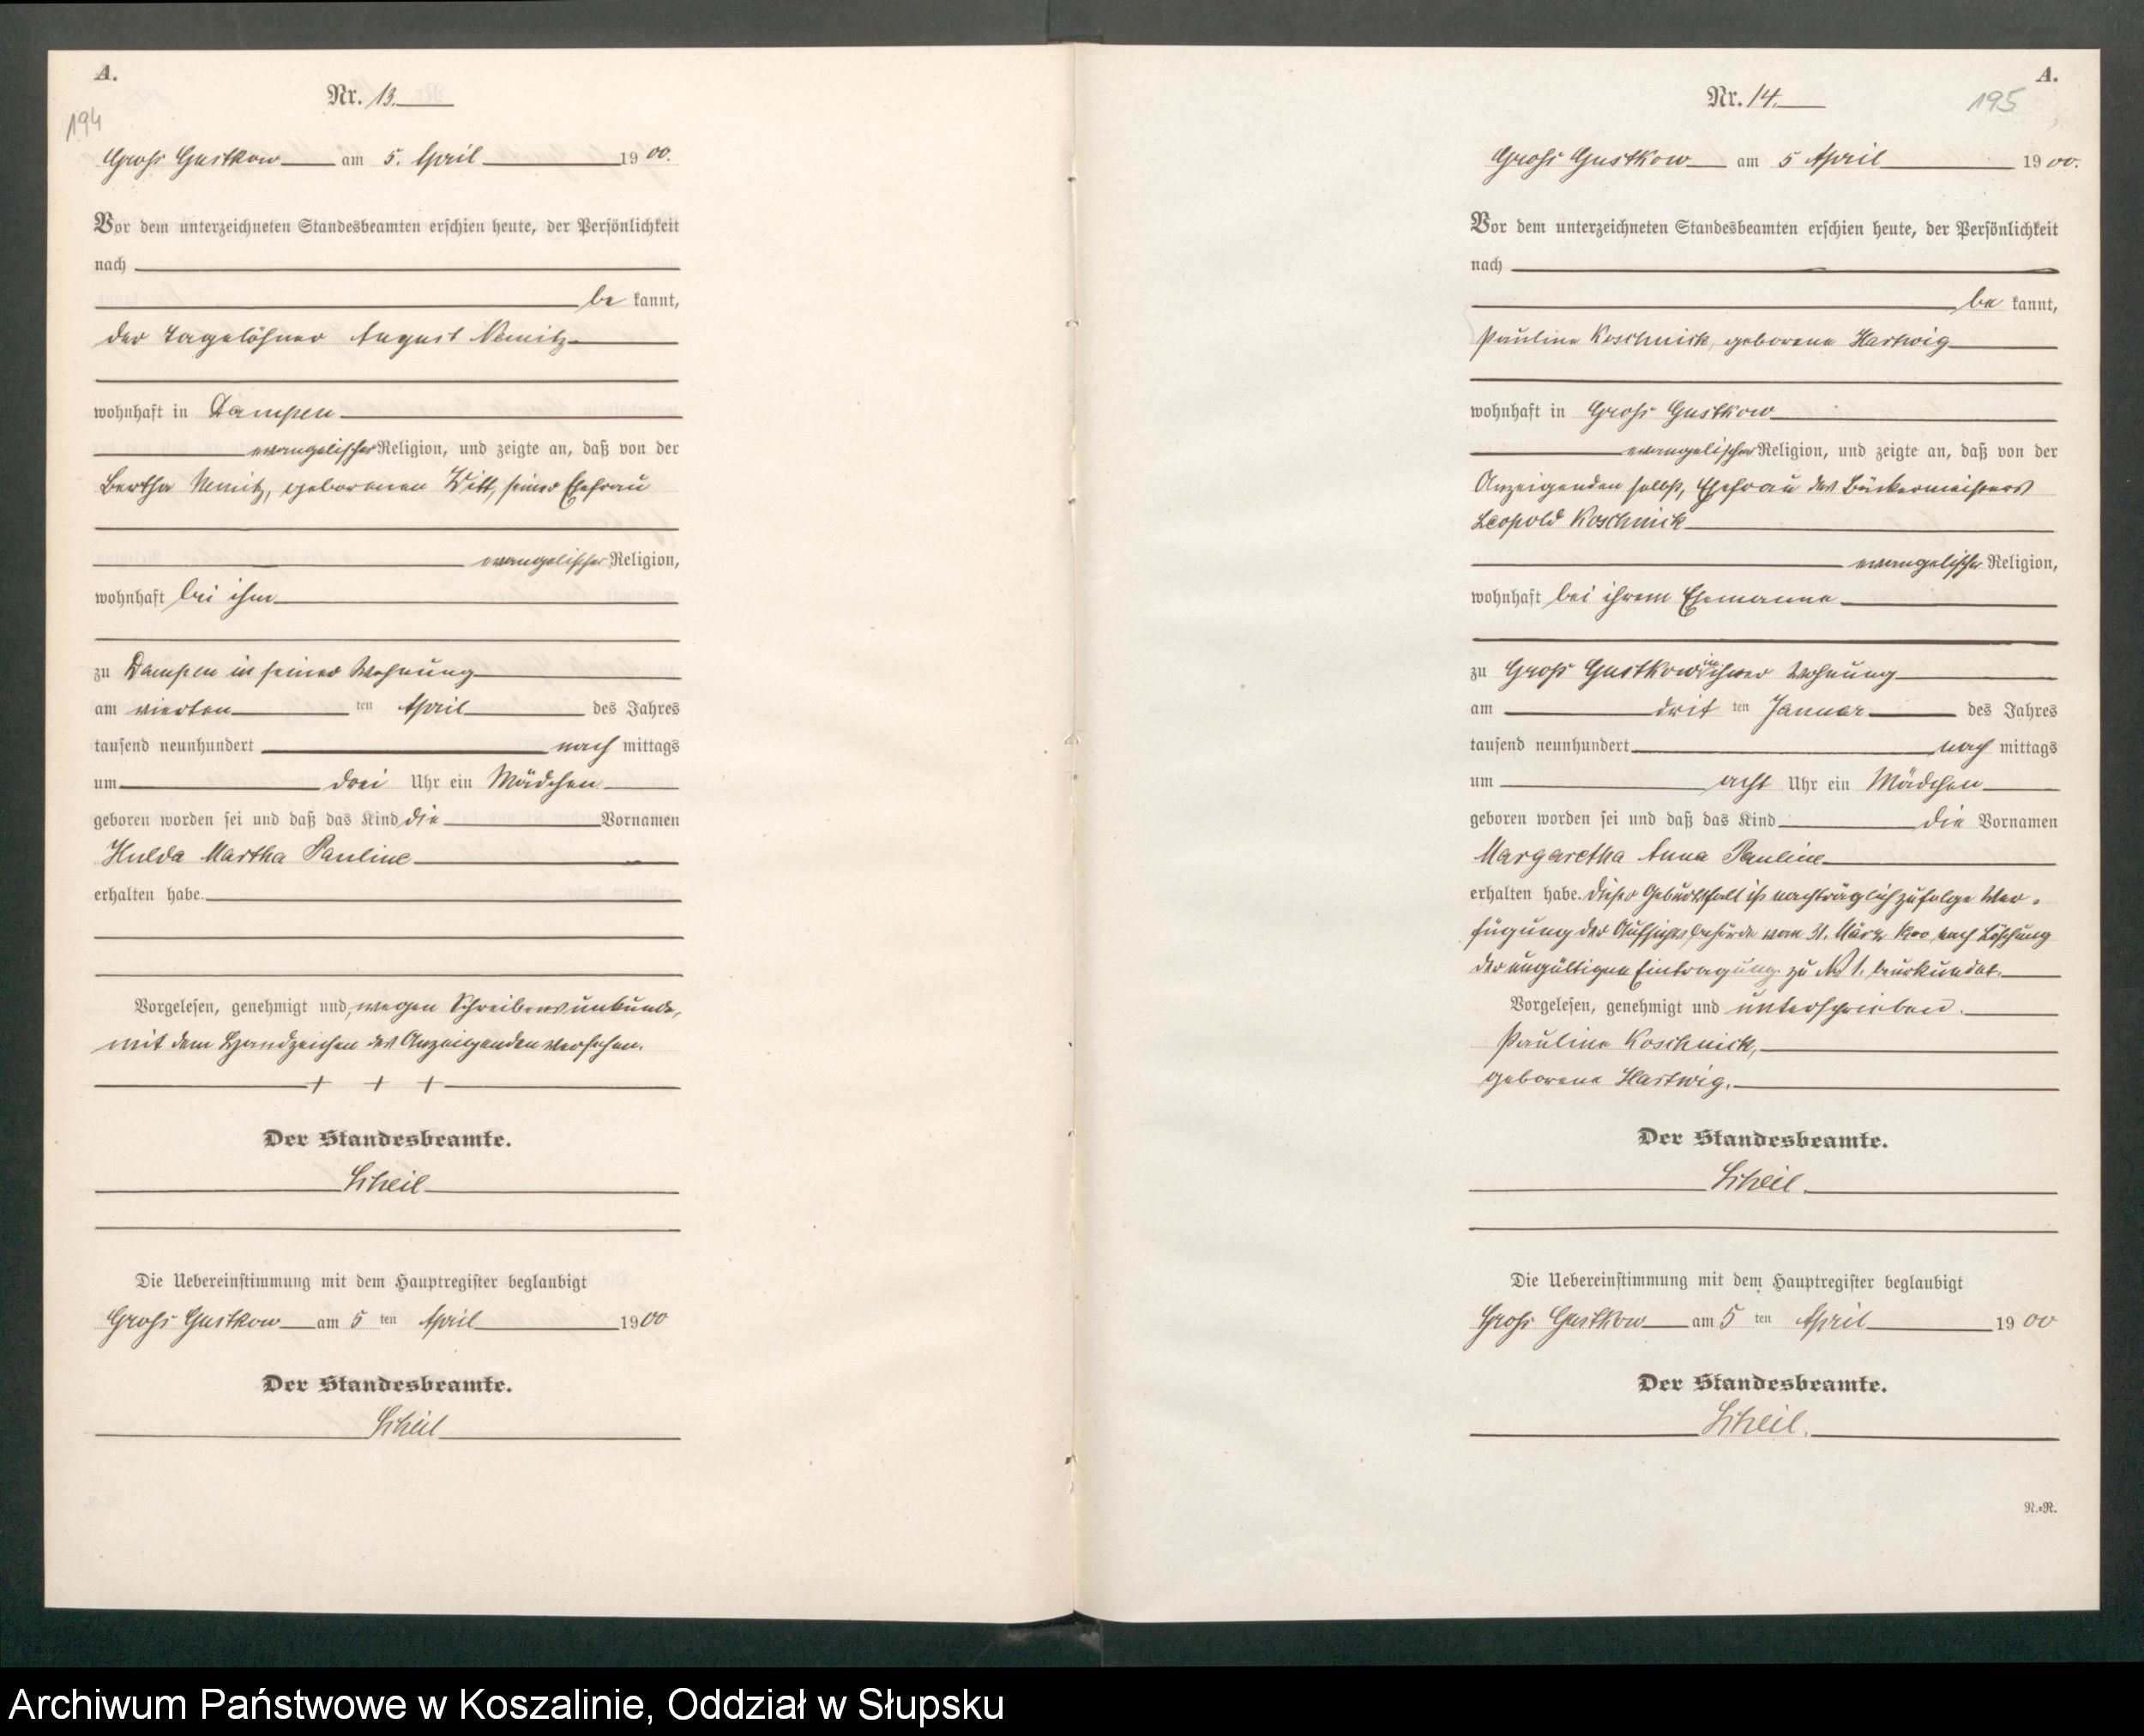 A.
Nr. 13.
194
Groß Gustkow am 5. April 1900.
Vor dem unterzeichneten Standesbeamten erschien heute, der Persönlichkeit
nach
be kannt,
der Tagelöhner August Nemitz
wohnhaft in Dampen
evangelischer Religion, und zeigte an, daß von der
Bertha Nemitz, geborenen Witt, seiner Ehefrau
evangelischer Religion,
wohnhaft bei ihm
zu Dampen in seiner Wohnung
am vierten ten April des Jahres
tausend neunhundert nach mittags
um drei Uhr ein Mädchen
geboren worden sei und daß das Kind die Vornamen
Hulda Martha Pauline
erhalten habe.
Vorgelesen, genehmigt und, wegen Schreibensunkunde,
mit dem Handzeichen des Anzeigenden versehen.
+ + +
Der Standesbeamte.
Scheil
Die Uebereinstimmung mit dem Hauptregister beglaubigt
Groß Gustkow am 5 ten April 1900
Der Standesbeamte.
Scheil
A.
Nr. 14.
195
Groß Gustkow am 5 April 1900.
Vor dem unterzeichneten Standesbeamten erschien heute, der Persönlichkeit
nach
be kannt,
Pauline Koschnick, geborene Hartwig
wohnhaft in Groß Gustkow
evangelischer Religion, und zeigte an, daß von der
Anzeigenden selbst, Ehefrau des Bäckermeisters
Leopold Koschnick
evangelischer Religion,
wohnhaft bei ihrem Ehemanne
zu Groß Gustkow in ihrer Wohnung
am drit ten Januar des Jahres
tausend neunhundert nach mittags
um acht Uhr ein Mädchen
geboren worden sei und daß das Kind die Vornamen
Margaretha Anna Pauline
erhalten habe. Dieser Geburtsfall ist nachträglich zufolge Ver-
fügung der Aufsichtsbehörde vom 31. März 1900 nach Löschung
der ungültigen Eintragung zu No 1. beurkundet.
Vorgelesen, genehmigt und unterschrieben.
Pauline Koschnick,
geborene Hartwig.
Der Standesbeamte.
Scheil.
Die Uebereinstimmung mit dem Hauptregister beglaubigt
Groß Gustkow am 5 ten April 1900
Der Standesbeamte.
Scheil.
N.=R.
Archiwum Państwowe w Koszalinie, Oddział w Słupsku